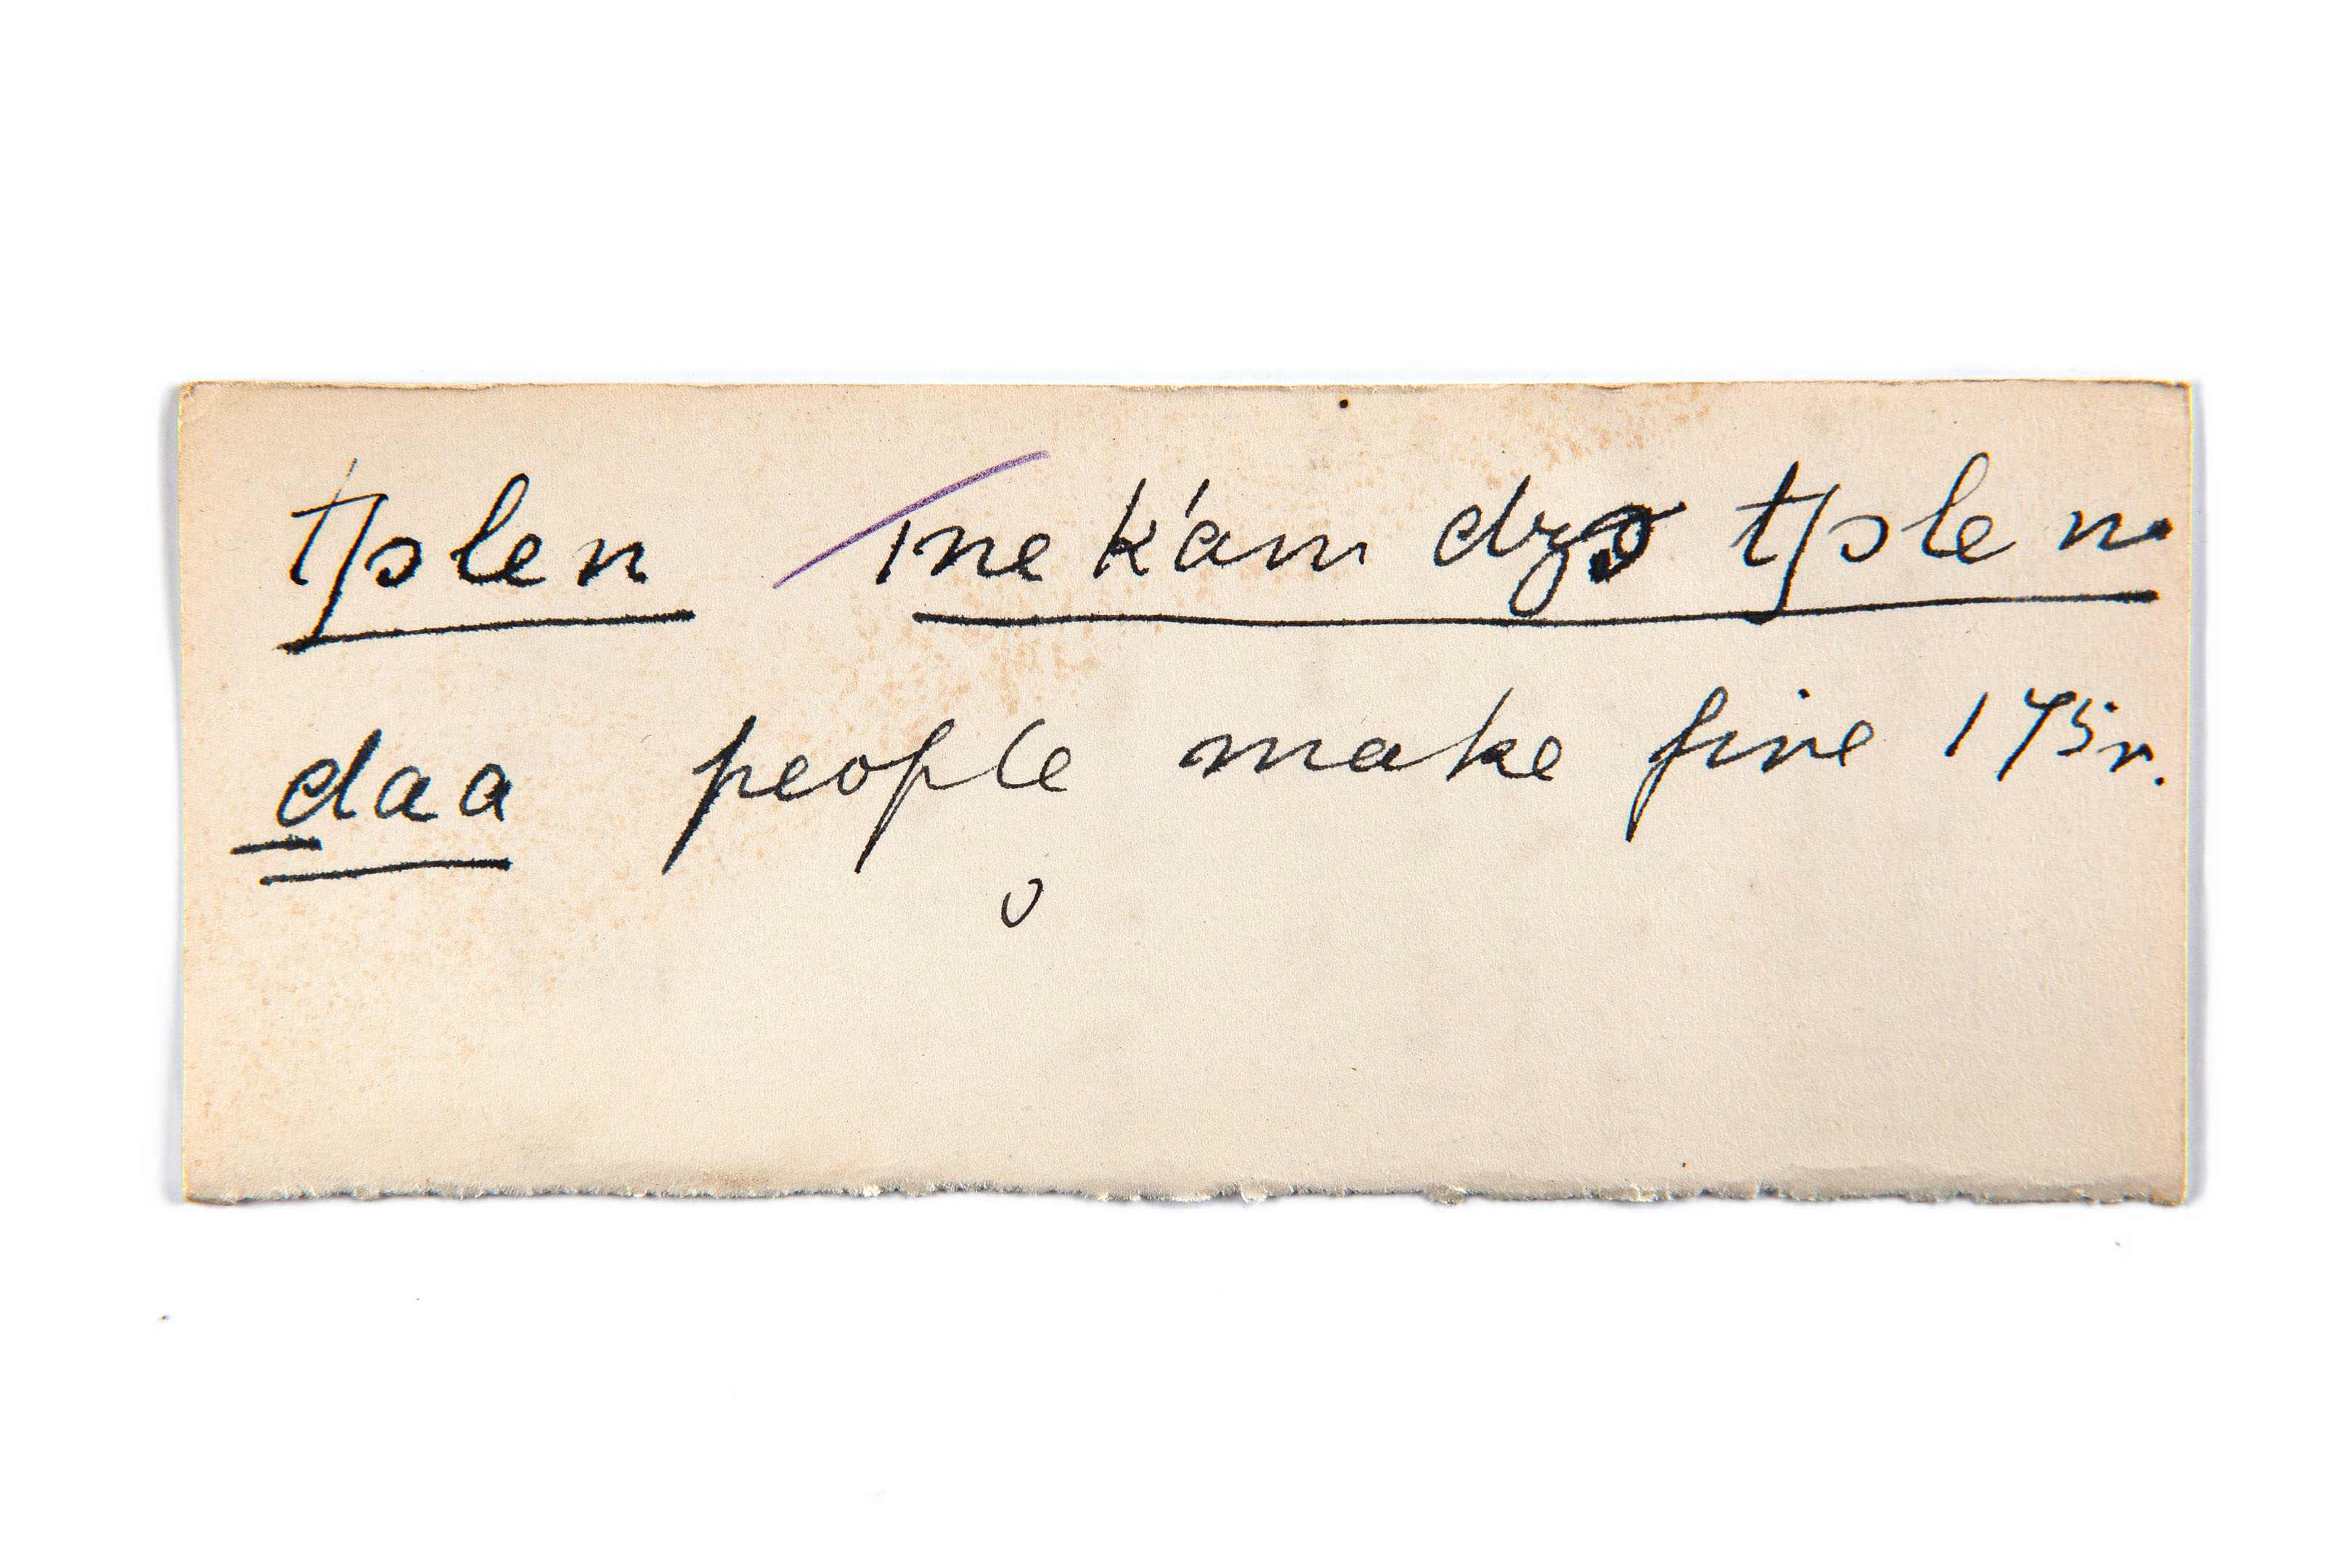 tʃɔlen ɪne k'am dzɔ tʃɔlen
daa people make fire 175r.